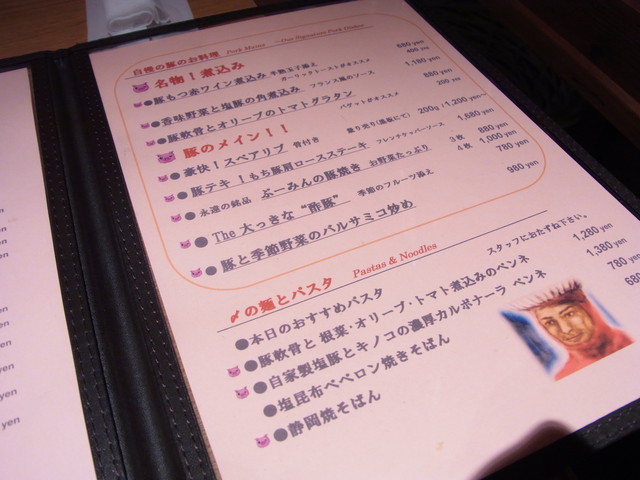 自慢の豚のお料理 Pork Menu ～Our Signature Pork Dishes
名物！煮込み
●豚もつ赤ワイン煮込み 半熟玉子添え 680 yen
ガーリックトーストがオススメ 400 yen
●香味野菜と塩豚の角煮込み フランス風のソース 1,180 yen
●豚軟骨とオリーブのトマトグラタン 880 yen
バゲットがオススメ 200 yen
豚のメイン！！
●豪快！スペアリブ 骨付き 量り売り(黒板にて) 200g/1,200 yen～
●豚テキ！もち豚肩ロースステーキ フレンチケッパーソース 1,680 yen
●永遠の銘品 ぶーみんの豚焼き お野菜たっぷり 3枚 880 yen
4枚 1,000 yen
●The 大っきな "酢豚" 季節のフルーツ添え 780 yen
●豚と季節野菜のバルサミコ炒め 980 yen
〆の麺とパスタ Pastas & Noodles
●本日のおすすめパスタ スタッフにおたずね下さい。
●豚軟骨と 根菜・オリーブ・トマト煮込みのペンネ 1,280 yen
●自家製塩豚とキノコの濃厚カルボナーラ ペンネ 1,380 yen
●塩昆布ペペロン焼きそばん 780 yen
●静岡焼そばん 680
yen
yen
yen
yen
yen
yen
yen
yen
yen